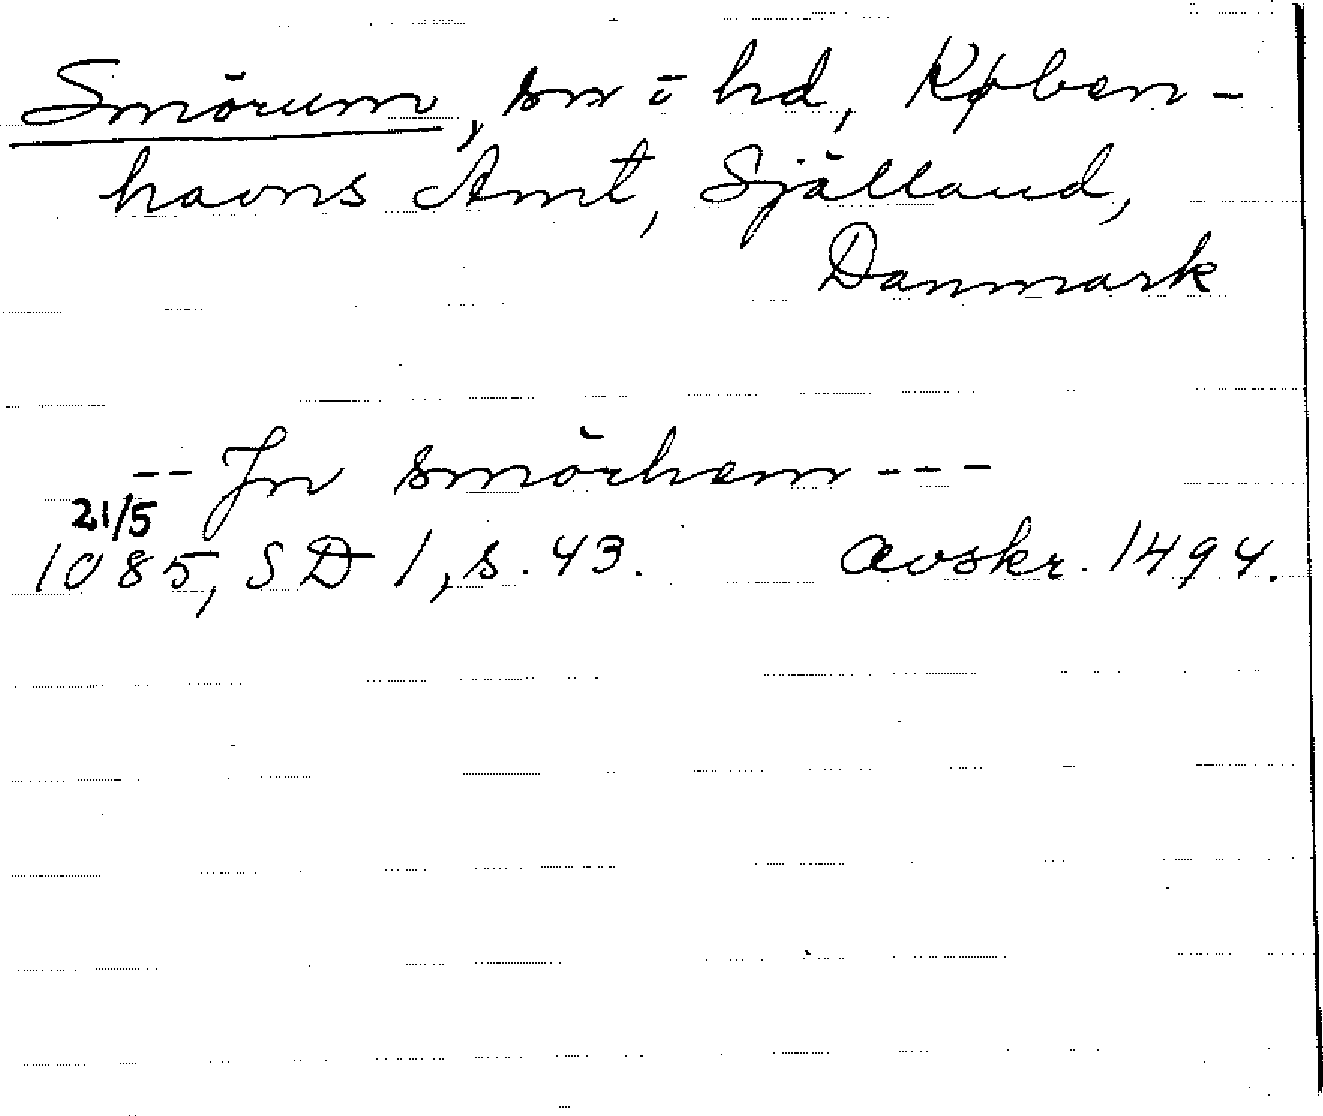 Smörum, sn ö hd, Køben-
havns Amt, Själland,
Danmark
-- Jn smörhem ---
21/5
1085, SD 1, s. 43. avskr. 1494.